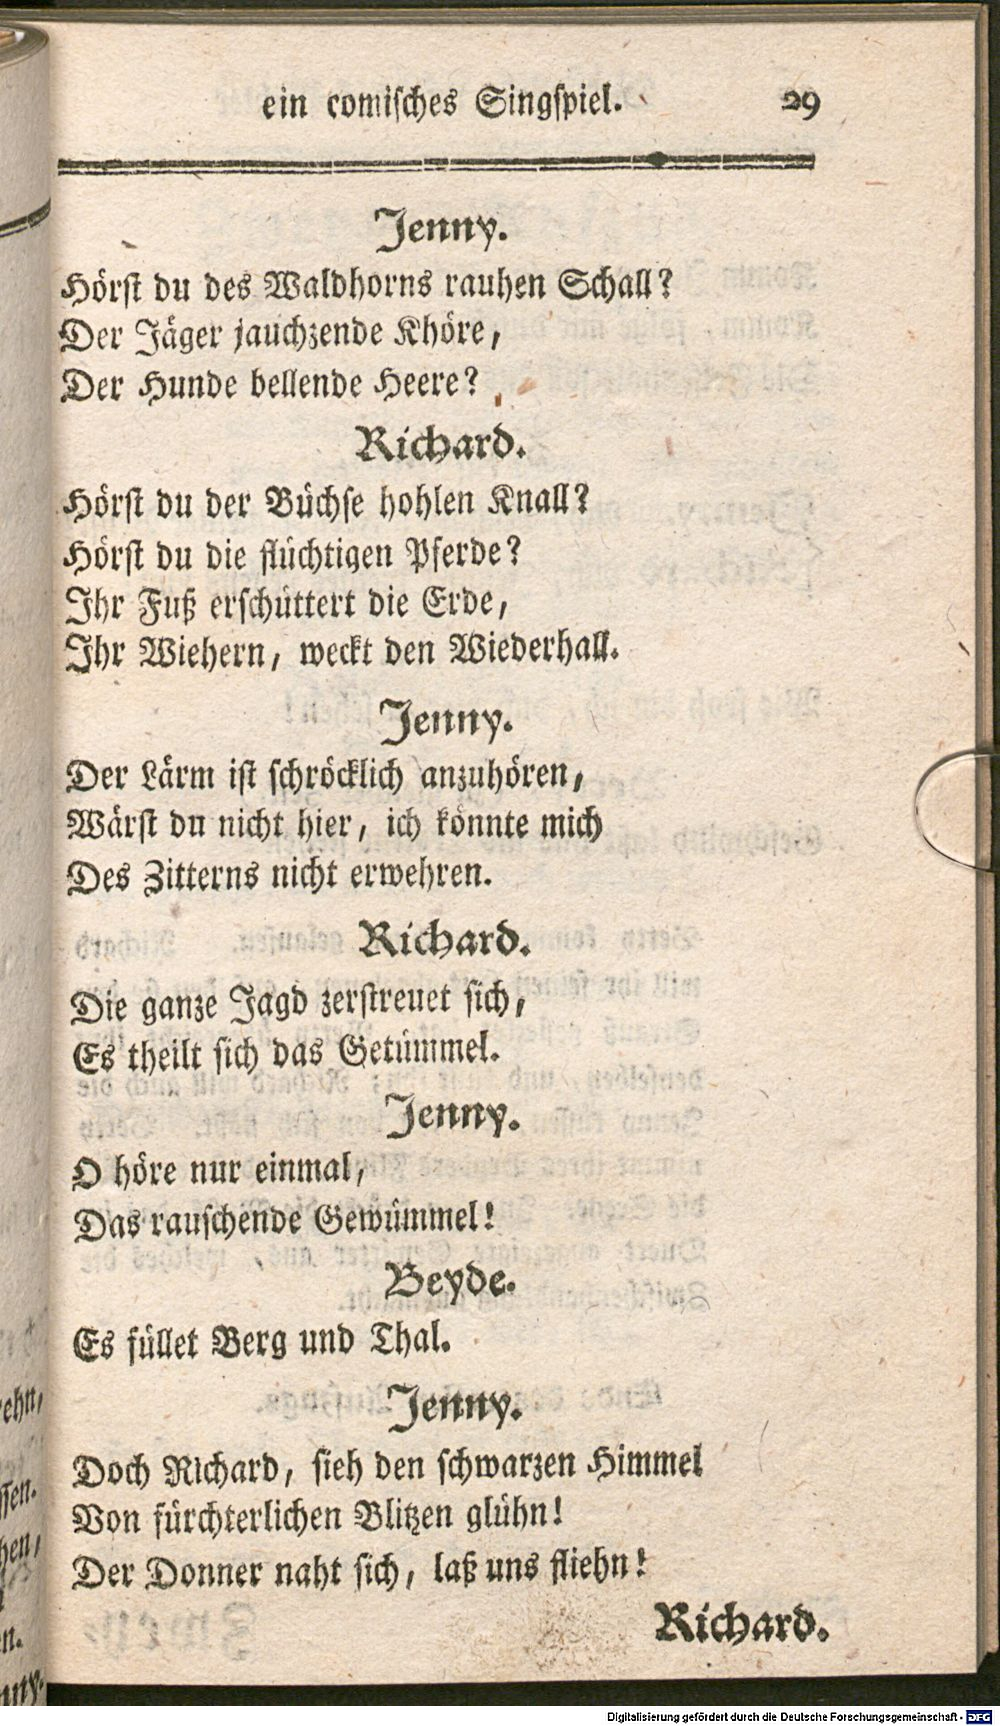 ein comisches Singspiel. 29
Jenny.
Hörst du des Waldhorns rauhen Schall?
Der Jäger jauchzende Khöre,
Der Hunde bellende Heere?
Richard.
Hörst du der Büchse hohlen Knall?
Hörst du die flüchtigen Pferde?
Ihr Fuß erschüttert die Erde,
Ihr Wiehern, weckt den Wiederhall.
Jenny.
Der Lärm ist schröcklich anzuhören,
Wärst du nicht hier, ich könnte mich
Des Zitterns nicht erwehren.
Richard.
Die ganze Jagd zerstreuet sich,
Es theilt sich das Getümmel.
Jenny.
O höre nur einmal,
Das rauschende Gewümmel!
Beyde.
Es füllet Berg und Thal.
Jenny.
Doch Richard, sieh den schwarzen Himmel
Von fürchterlichen Blitzen glühn!
Der Donner naht sich, laß uns fliehn!
Richard.
Digitalisierung gefördert durch die Deutsche Forschungsgemeinschaft - DFG